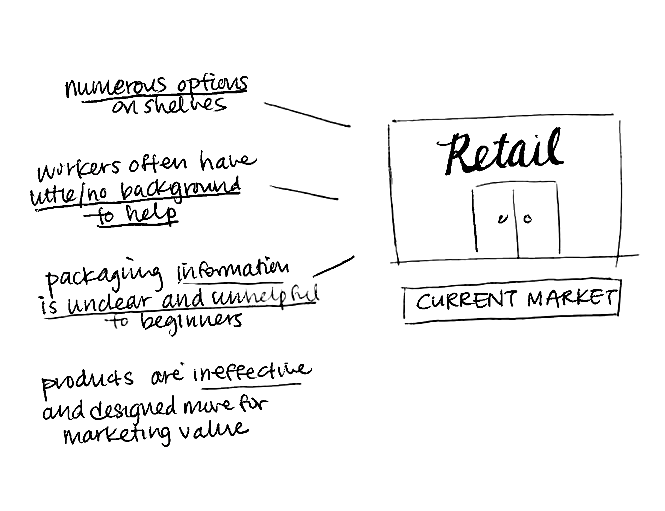 numerous options
on shelves
workers often have
little/no background
to help
packaging information
is unclear and unhelpful
to beginners
products are ineffective
and designed more for
marketing value
Retail
CURRENT MARKET